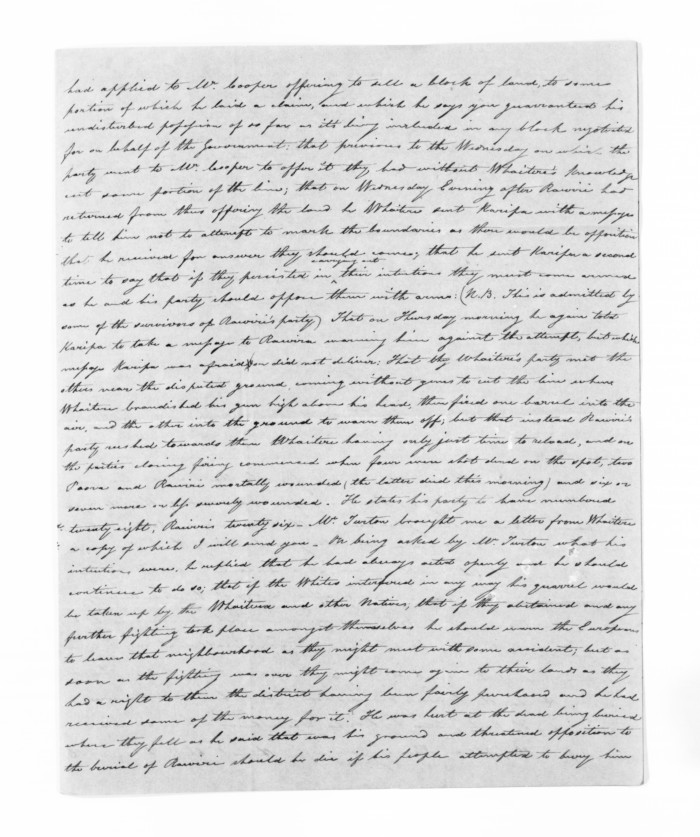 had applied to Mr. Cooper offering to sell a block of land, to some
portion of which he laid a claim, and which he says you guaranteed his
undisturbed possession of so far as its being included in any block negotiated
for on behalf of the Government: that previous to the Wednesday on which the
party went to Mr. Cooper to offer it they had without Whaitere's knowledge
cut some portion of the line; that on Wednesday Evening after Rawiri had
returned from thus offering the land he Whaitere sent Karipa with a message
to tell him not to attempt to mark the boundaries as there would be opposition
that he received for answer they should come; that he sent Karipa a second
time to say that if they persisted in carrying out their intentions they must come armed
as he and his party should oppose them with arms: (N.B. This is admitted by
some of the survivors of Rawiri's party) That on Thursday morning he again told
Karipa to take a message to Rawiri warning him against the attempt, but which
message Karipa was afraid on did not deliver. That they Whaitere's party met the
others near the disputed ground, coming without guns to cut the line where
Whaitere brandished his gun high above his head, then fired one barrel into the
air, and the other into the ground to warn them off; but that instead Rawiri's
party rushed towards them Whaitere having only just time to reload, and on
the parties closing firing commenced when four were shot dead on the spot, two
Paora and Rawiri mortally wounded (the latter died this morning) and six or
seven more or less severely wounded. He states his party to have numbered
twenty eight, Rawiri's twenty six - Mr. Turton brought me a letter from Whaitere
a copy of which I will send you - On being asked by Mr. Turton what his
intentions were, he replied that he had always acted openly and he should
continue to do so; that if the Whites interfered in any way his quarrel would
be taken up by the Whaitere and other Natives, that if they abstained and any
further fighting took place amongst themselves he should warn the Europeans
to leave that neighbourhood as they might meet with some accident; but as
soon as the fighting was over they might come again to their lands as they
had a right to them the district having been fairly purchased and he had
received some of the money for it. He was hurt at the dead being buried
where they fell as he said that was his ground and threatened opposition to
the burial of Rawiri should he die if his people attempted to bury him